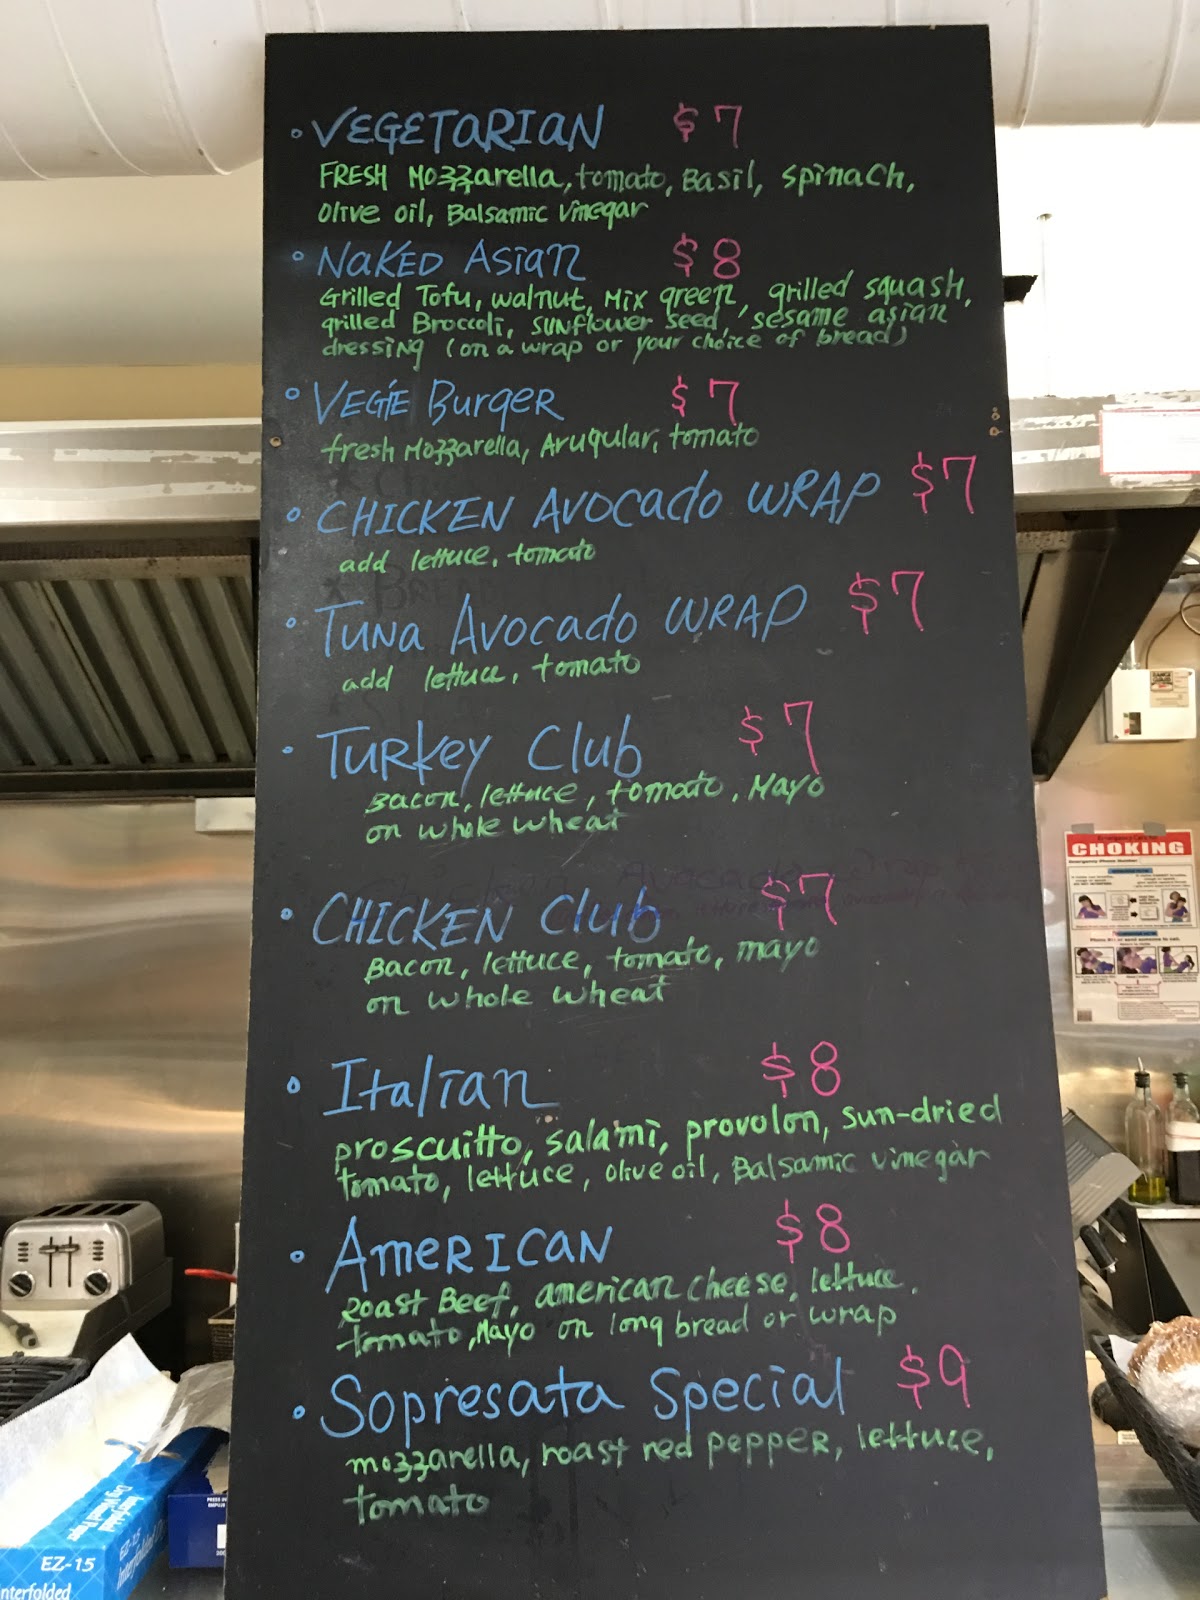 VEGETARIAN $7
FRESH Mozzarella, tomato, Basil, spinach,
olive oil, Balsamic vinegar
NAKED ASIAN $8
Grilled Tofu, walnut, Mix green, grilled squash,
grilled Broccoli, sunflower seed, sesame asian
dressing (on a wrap or your choice of bread)
VEGIE Burger $7
fresh Mozzarella, Arugular, tomato
CHICKEN AVOCADO WRAP $7
add lettuce, tomato
TUNA AVOCADO WRAP $7
add lettuce, tomato
TURKEY Club $7
Bacon, lettuce, tomato, Mayo
on whole wheat
CHICKEN Club $7
Bacon, lettuce, tomato, mayo
on whole wheat
Italian $8
proscuitto, salami, provolon, sun-dried
tomato, lettuce, olive oil, Balsamic vinegar
AMERICAN $8
Roast Beef, american cheese, lettuce,
tomato, Mayo on long bread or wrap
Sopresata Special $9
mozzarella, roast red pepper, lettuce,
tomato
CHOKING
EZ-15
Interfolded